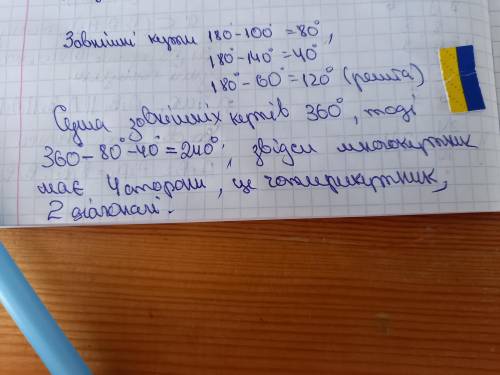 Зовнішні кути 180°-100°=80°,
180°-140°=40°
180°-60°=120° (решта)
Сума зовнішніх кутів 360°, тоді
360-80°-40°=240°, звідси многокутник
має 4 сторони, це чотирикутник,
2 діагоналі.